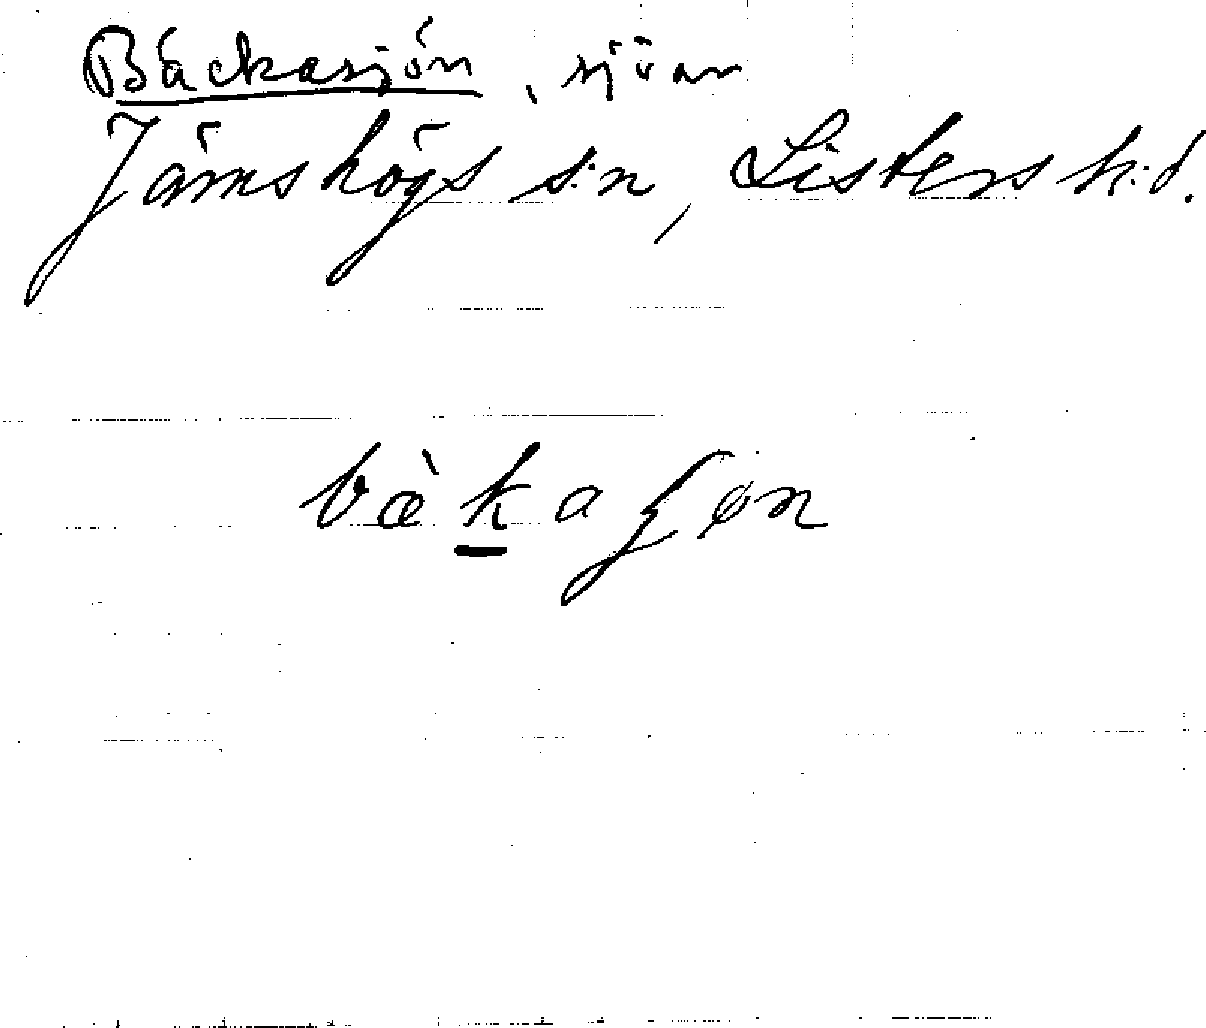 Bäckasjön, sjöar
Jämshögs s:n, Listers h:d.
bæ̀k̲aʃøn